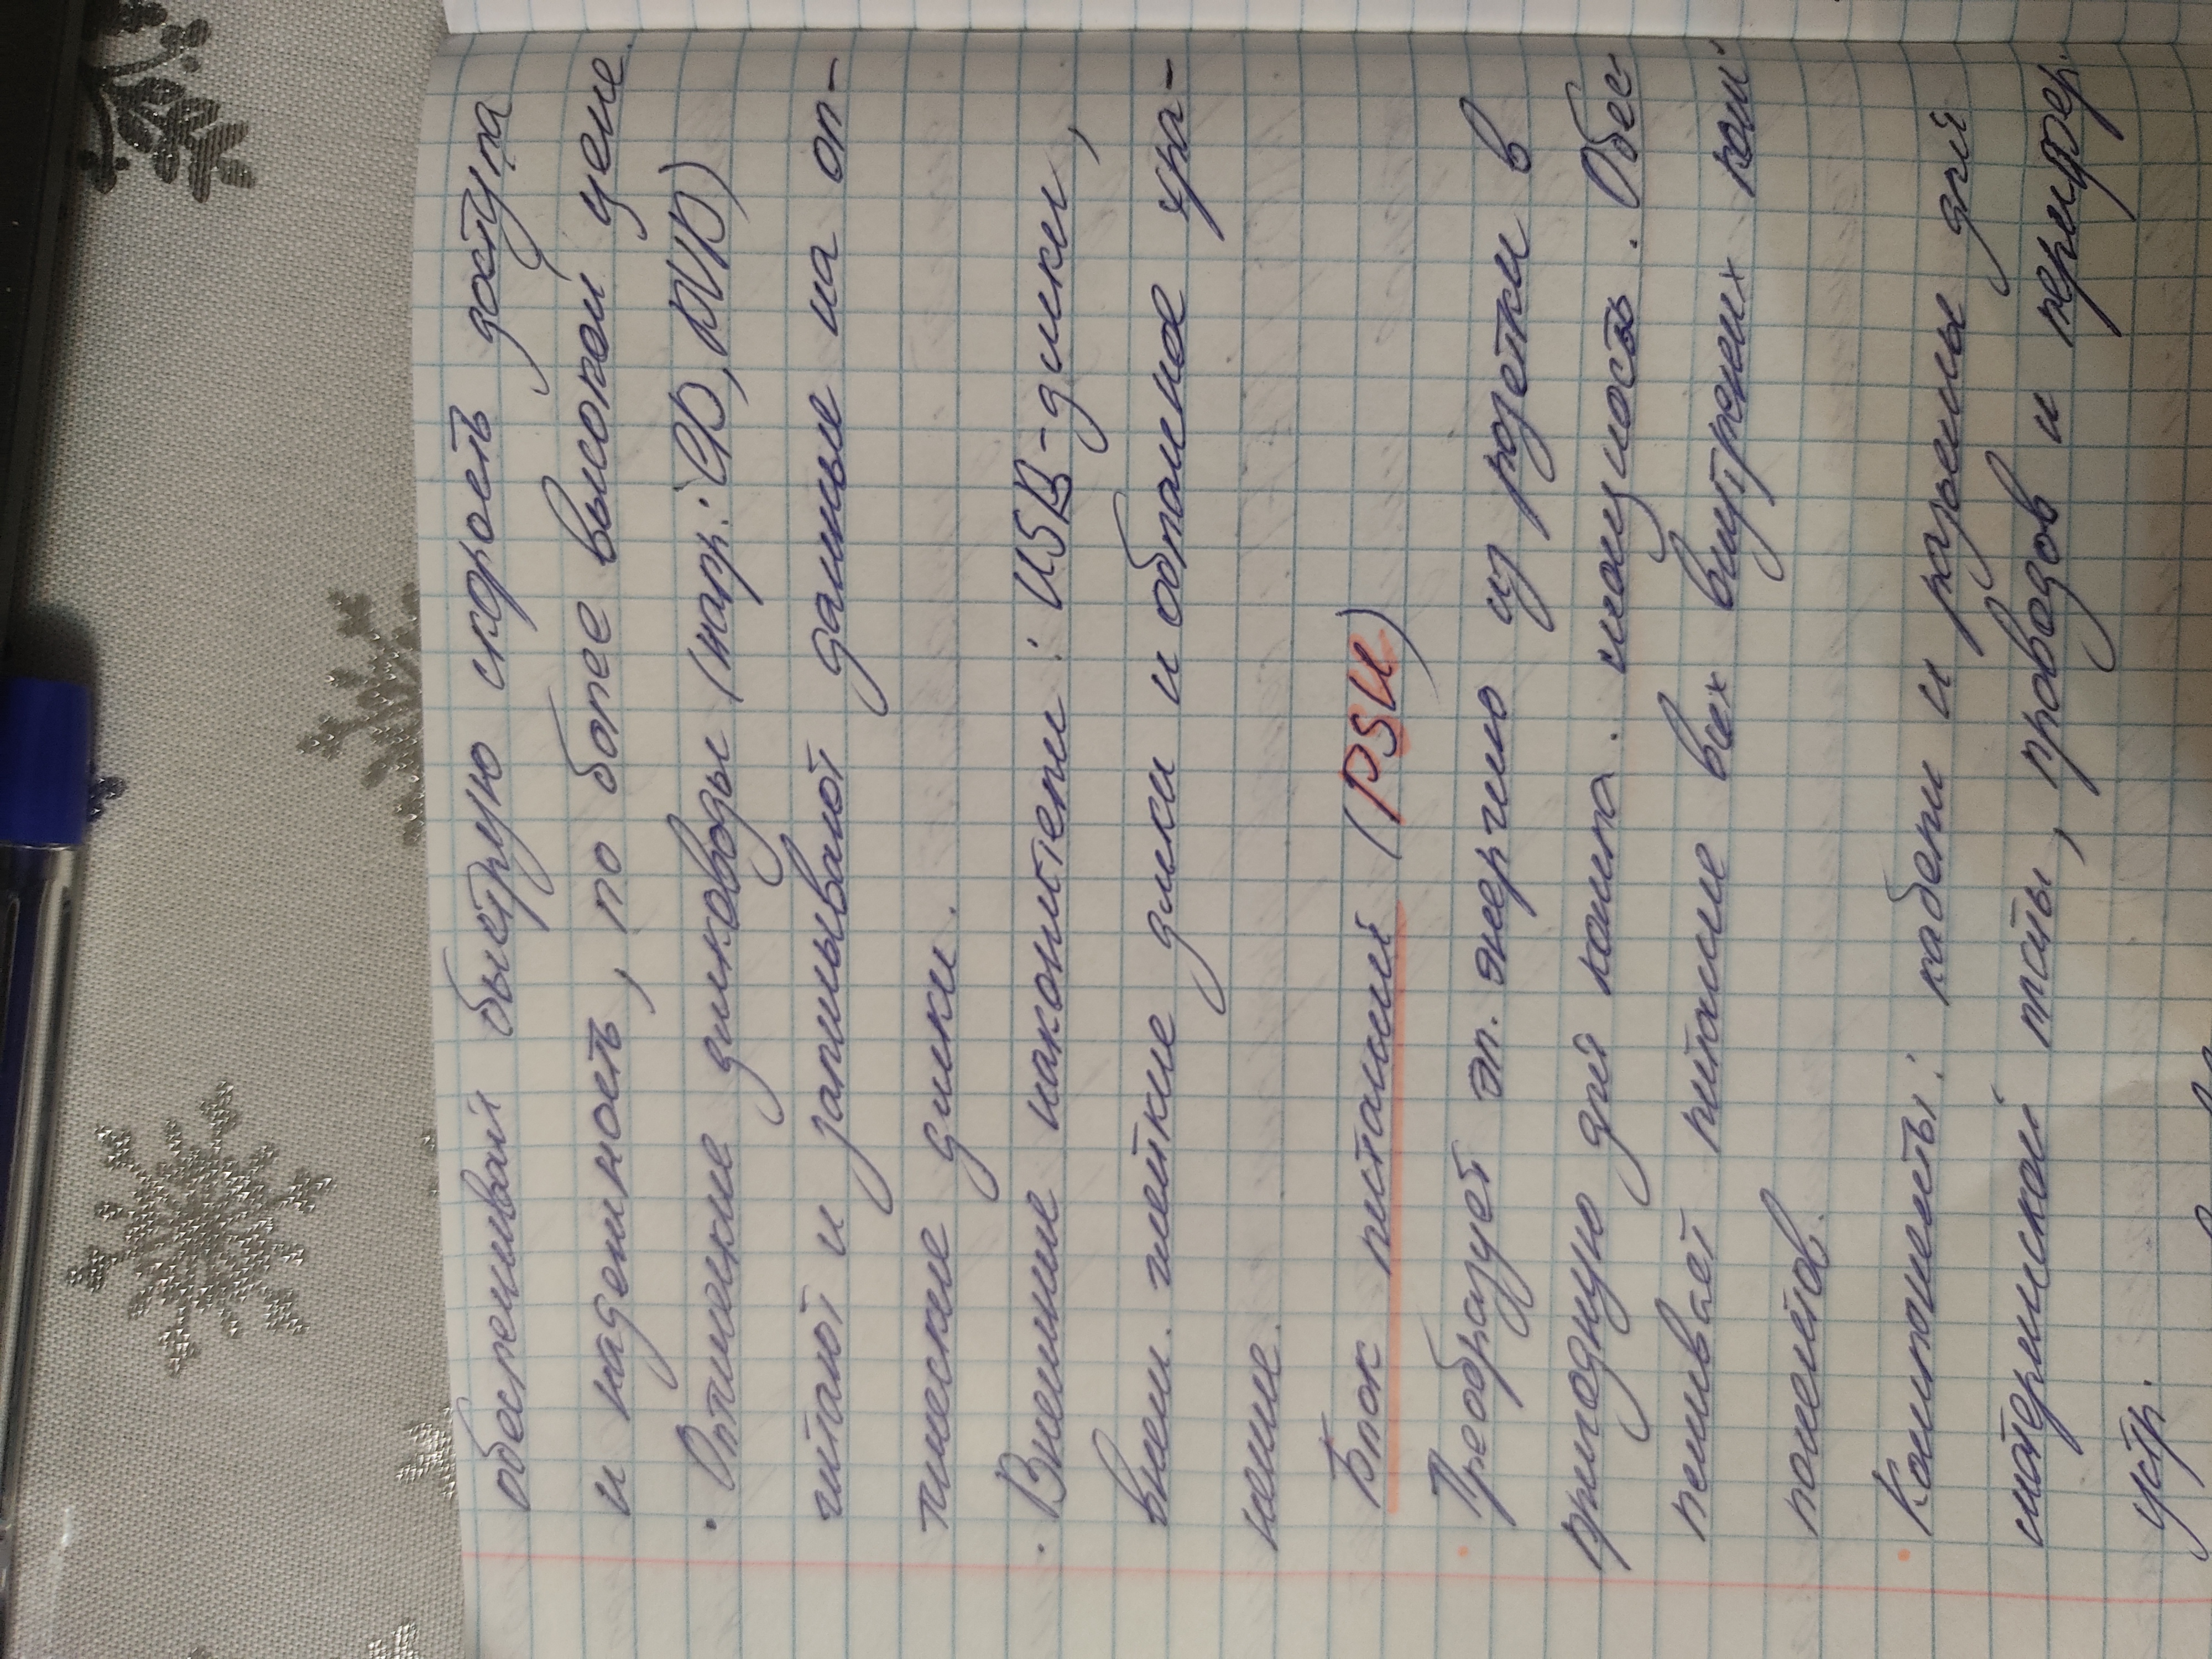 обеспечивая быструю скорость доступа
и надежность, по более высокой цене.
· Оптические дисководы (напр.: CD, DVD)
читают и записывают данные на оп-
тические диски.
· Внешние накопители: USB-диски,
внеш. жёсткие диски и облачное хра-
нение.
Блок питаний (PSU)
· Преобразует эл. энергию из розетки в
пригодную для компа. мощность. Обес-
печивает питание всех внутрених ком-
понентов.
· Компоненты: кабели и разьемы для
материнской платы, проводов и перифер.
устр.